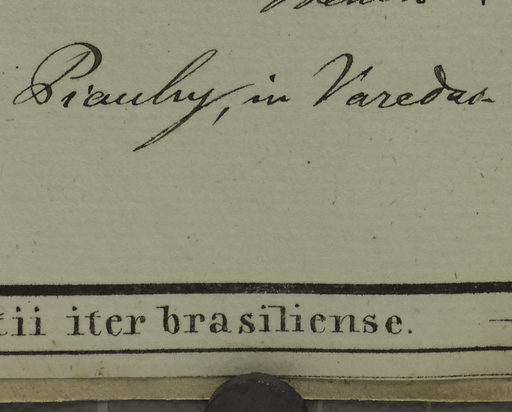 Piauhy, in Varedas.
tii iter brasiliense.